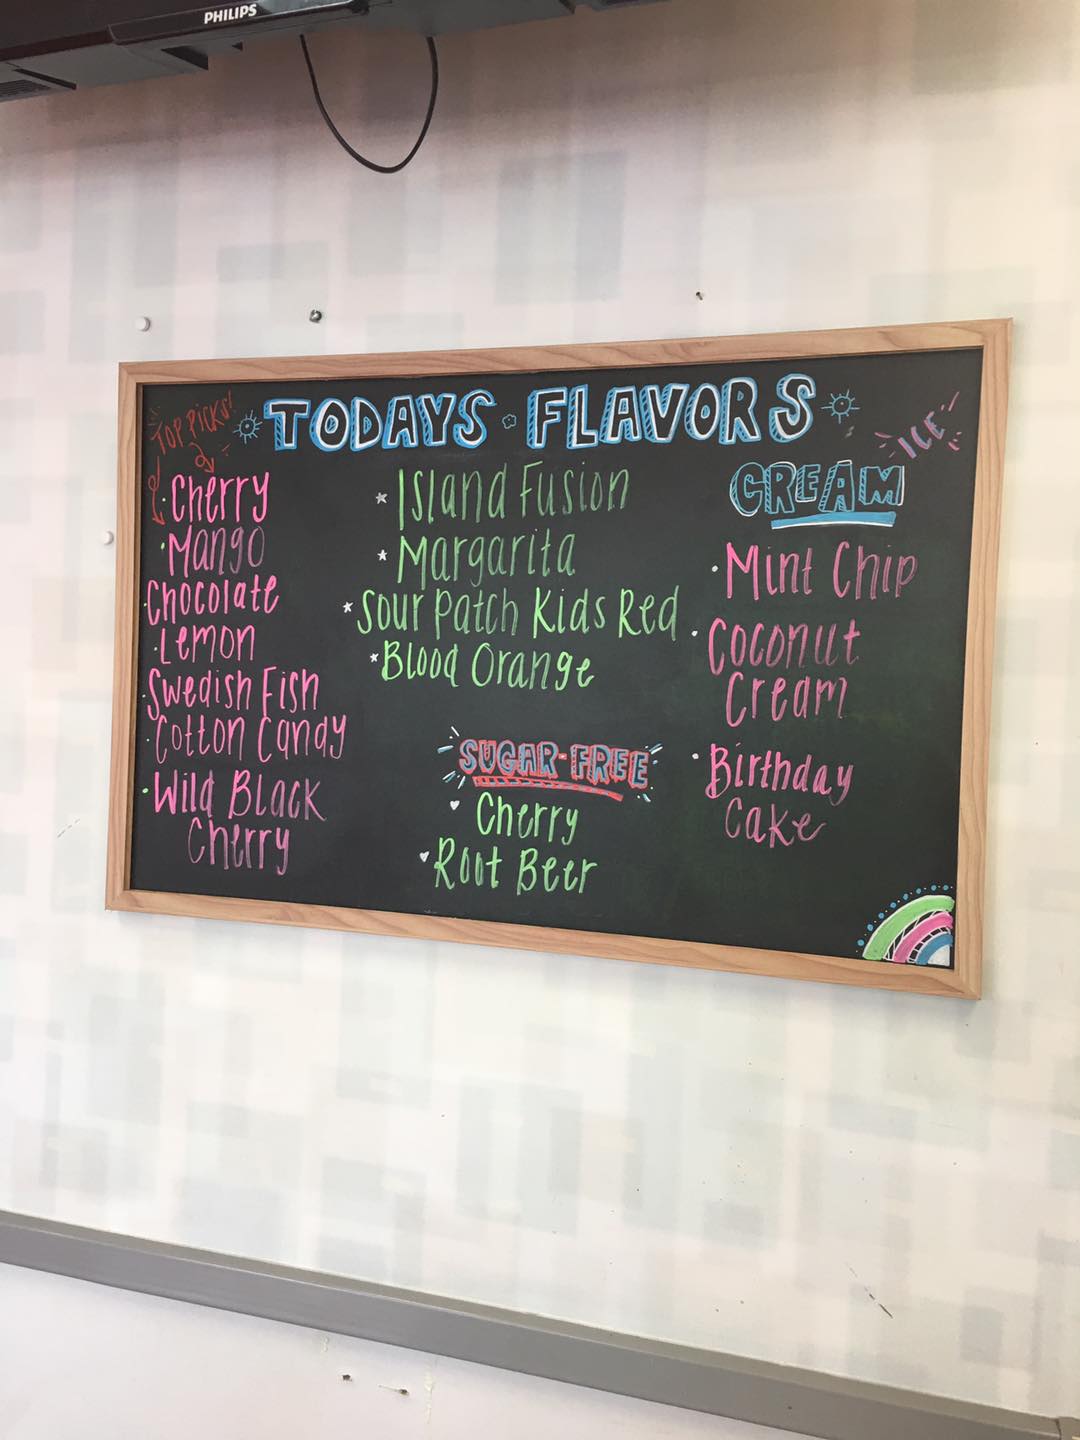 PHILIPS
TODAYS FLAVORS
TOP PICKS!
Cherry
Mango
Chocolate
Lemon
Swedish Fish
Cotton Candy
Wild Black
Cherry
Island Fusion
Margarita
Sour Patch Kids Red
Blood Orange
SUGAR-FREE
Cherry
Root Beer
ICE
CREAM
Mint Chip
Coconut
Cream
Birthday
Cake